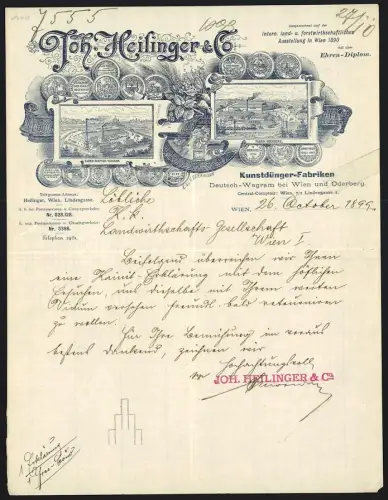 7555
1899
27/10
Joh. Heilinger & Co
Ausgezeichnet auf der
intern. land- u. forstwirthschaftlichen
Ausstellung in Wien 1890
mit dem
Ehren-Diplom.
Kunstdünger-Fabriken
Deutsch-Wagram bei Wien und Oderberg.
Telegramm-Adresse:
Heilinger, Wien, Lindengasse.
Nr. 828.128.
Nr. 5596.
Telephon
WIEN, 26. October 1899
Löbliche
k. k.
Landwirthschafts-Gesellschaft
Wien I
Beifolgend überreichen wir Ihnen
eine Kainit-Erklärung mit dem höflichen
Ersuchen, uns dieselbe mit Ihrem werten
Visum versehen freundl. bald retournieren
zu wollen.
Für Ihre Bemühung im voraus
bestens dankend, zeichnen wir
Hochachtungsvoll
JOH. HEILINGER & Co.
1 Erklärung